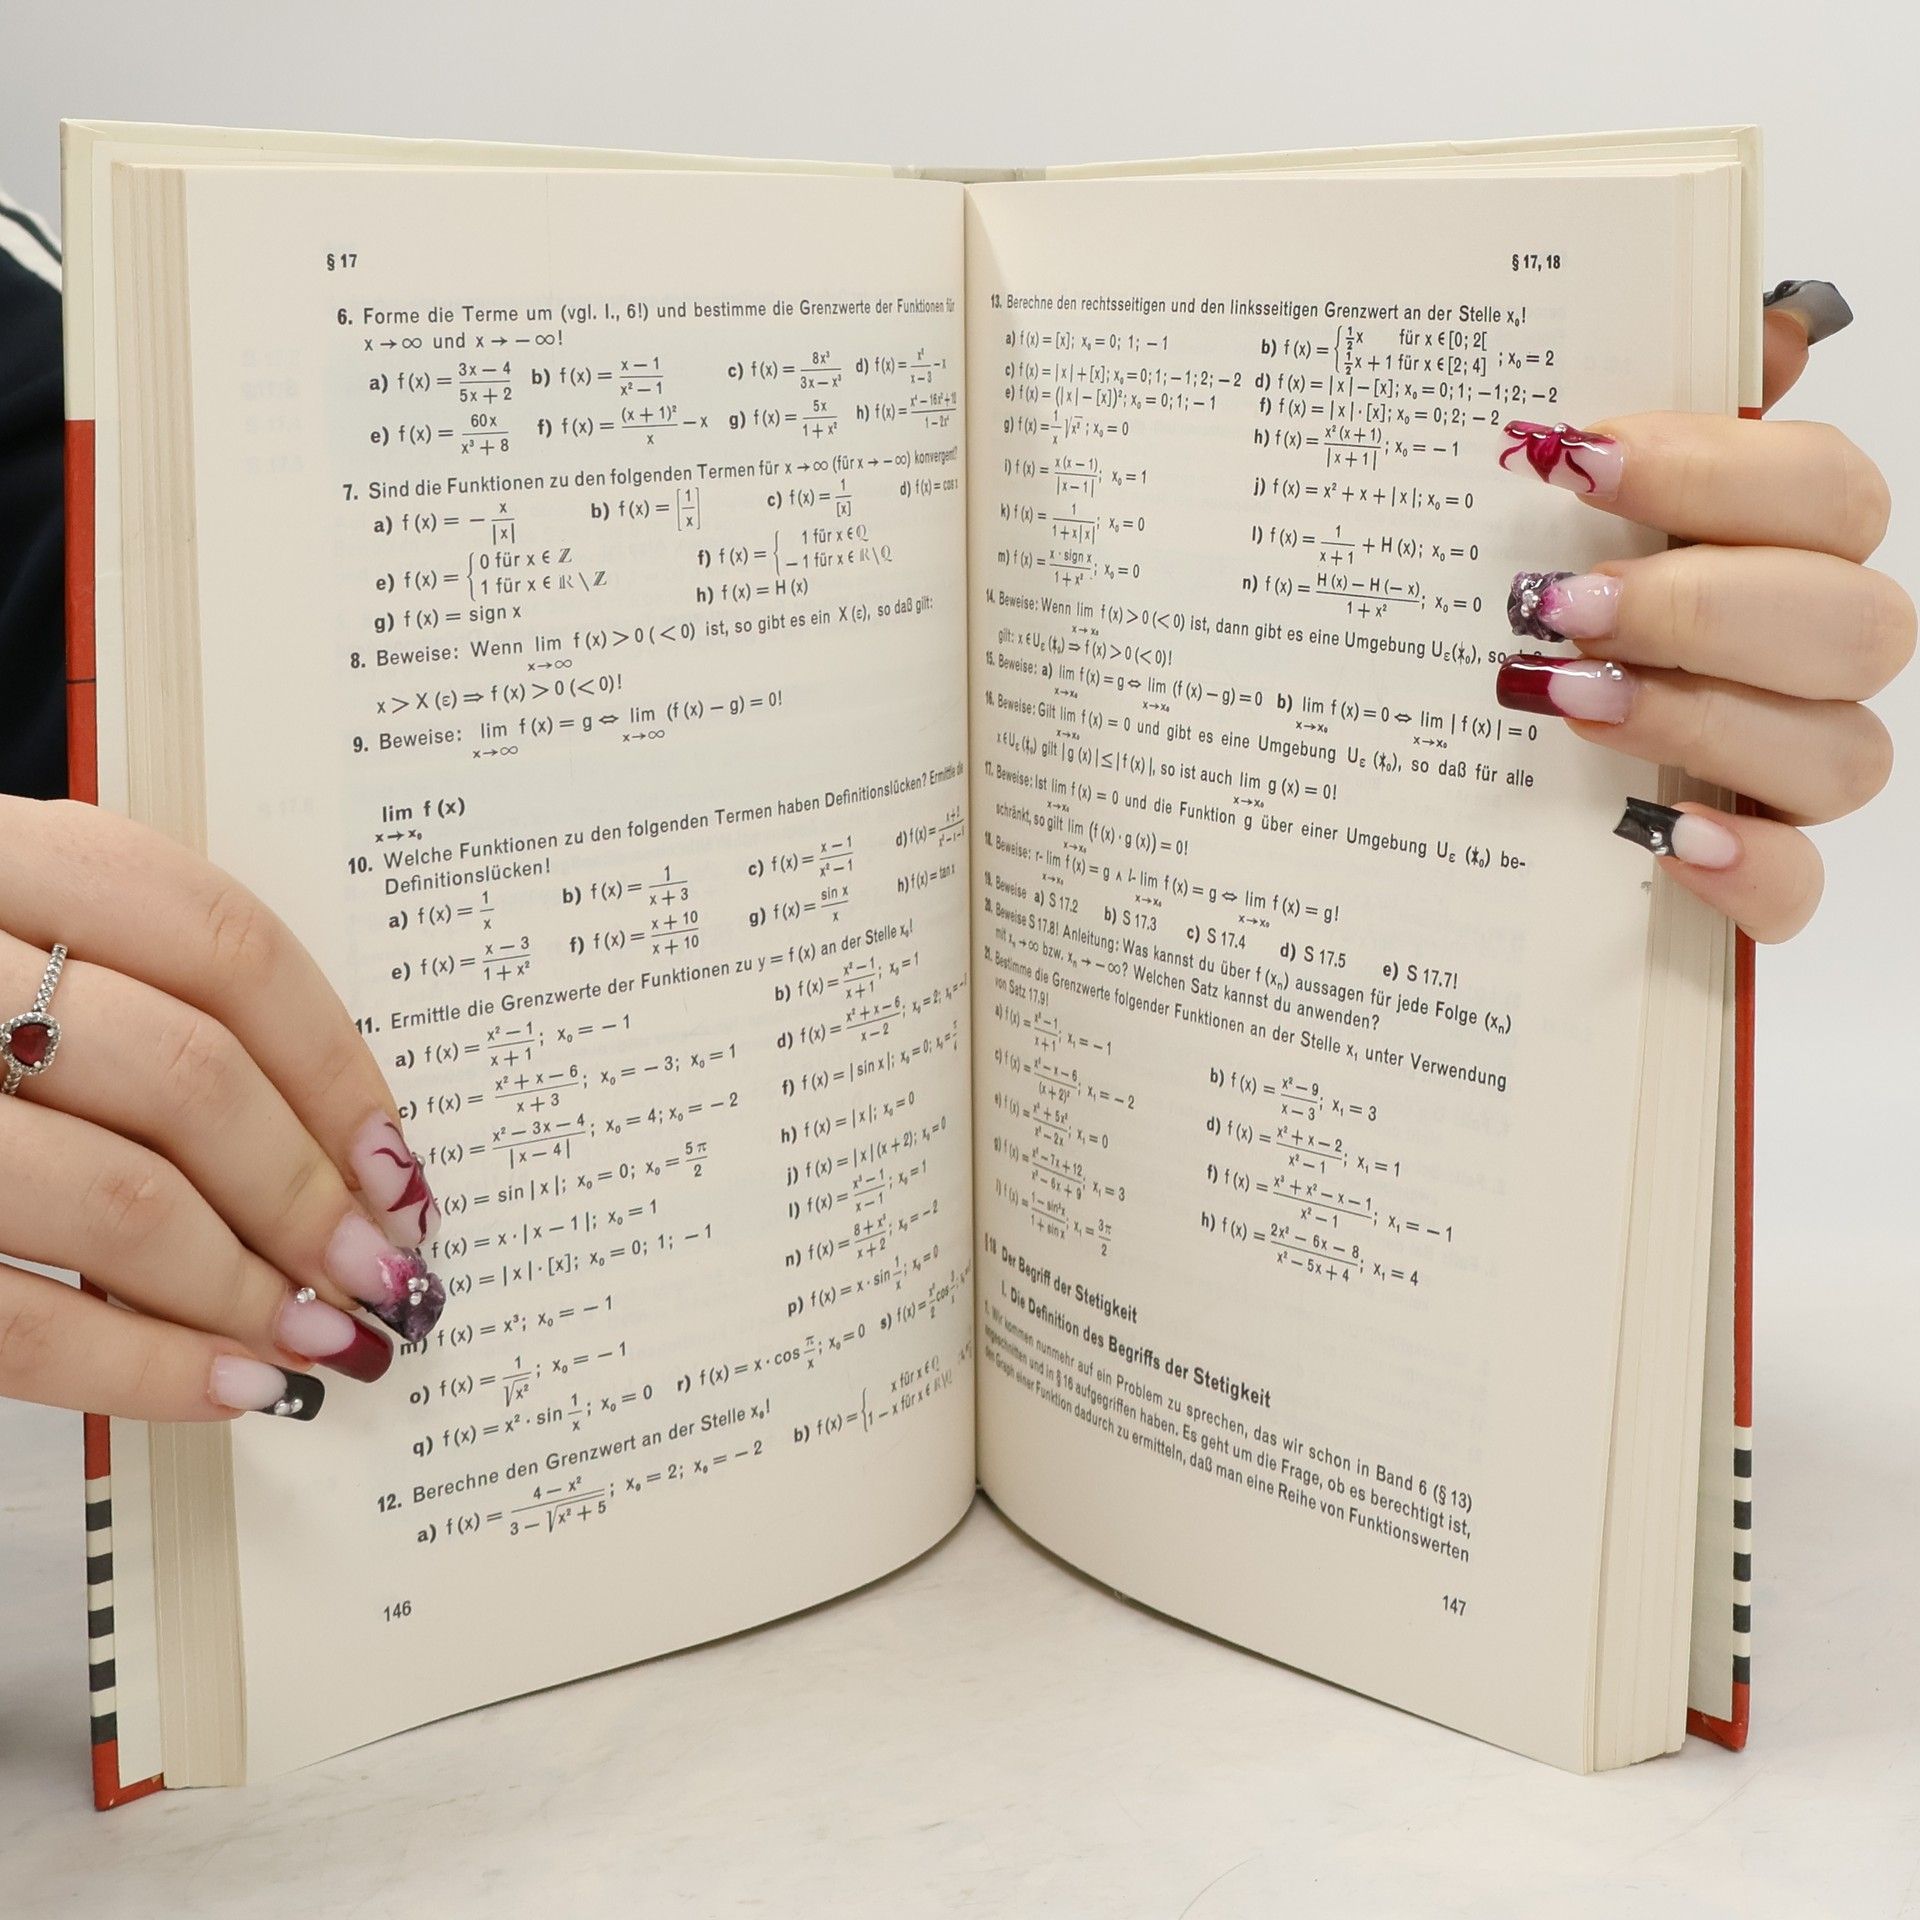 § 17
6. Forme die Terme um (vgl. I., 6!) und bestimme die Grenzwerte der Funktionen für
x → ∞ und x → − ∞!
a) f(x) = (3x − 4)/(5x + 2) b) f(x) = (x − 1)/(x² − 1) c) f(x) = 8x³/(3x − x³) d) f(x) = x²/(x − 3) − x
e) f(x) = 60x/(x³ + 8) f) f(x) = (x + 1)²/x − x g) f(x) = 5x/(1 + x²) h) f(x) =
7. Sind die Funktionen zu den folgenden Termen für x → ∞ (für x → − ∞) konvergent?
a) f(x) = − x/|x| b) f(x) = [1/x] c) f(x) = 1/[x] d) f(x) = cos x
e) f(x) = { 0 für x ∈ ℤ
1 für x ∈ ℝ \ ℤ
f) f(x) = { 1 für x ∈ ℚ
− 1 für x ∈ ℝ \ ℚ
g) f(x) = sign x h) f(x) = H (x)
8. Beweise: Wenn lim f(x) > 0 (< 0) ist, so gibt es ein X (ε), so daß gilt:
x→∞
x > X (ε) ⇒ f(x) > 0 (< 0)!
9. Beweise: lim f(x) = g ⇔ lim (f(x) − g) = 0!
x→∞ x→∞
lim f (x)
x→x₀
10. Welche Funktionen zu den folgenden Termen haben Definitionslücken? Ermittle die
Definitionslücken!
a) f(x) = 1/x b) f(x) = 1/(x + 3) c) f(x) = (x − 1)/(x² − 1) d) f(x) =
e) f(x) = (x − 3)/(1 + x²) f) f(x) = (x + 10)/(x + 10) g) f(x) = sin x/x h) f(x) = tan x
11. Ermittle die Grenzwerte der Funktionen zu y = f(x) an der Stelle x₀!
a) f(x) = (x² − 1)/(x + 1); x₀ = − 1 b) f(x) = (x² − 1)/(x + 1); x₀ = 1
c) f(x) = (x² + x − 6)/(x + 3); x₀ = − 3; x₀ = 1 d) f(x) = (x² + x − 6)/(x − 2); x₀ = 2;
f(x) = (x² − 3x − 4)/|x − 4|; x₀ = 4; x₀ = − 2 f) f(x) = |sin x|; x₀ = 0;
f(x) = sin |x|; x₀ = 0; x₀ = 5π/2 h) f(x) = |x|; x₀ = 0
f(x) = x · |x − 1|; x₀ = 1 j) f(x) = |x| (x + 2); x₀ = 0
(x) = |x| · [x]; x₀ = 0; 1; − 1 l) f(x) = (x³ − 1)/(x − 1); x₀ = 1
m) f(x) = x³; x₀ = − 1 n) f(x) = (8 + x³)/(x + 2); x₀ = − 2
o) f(x) = 1/√x²; x₀ = − 1 p) f(x) = x · sin 1/x; x₀ = 0
q) f(x) = x² · sin 1/x; x₀ = 0 r) f(x) = x · cos π/x; x₀ = 0 s) f(x) =
12. Berechne den Grenzwert an der Stelle x₀!
a) f(x) = (4 − x²)/(3 − √(x² + 5)); x₀ = 2; x₀ = − 2 b) f(x) = { x für x ∈ ℚ
1 − x für x ∈ ℝ \ ℚ
146
§ 17, 18
13. Berechne den rechtsseitigen und den linksseitigen Grenzwert an der Stelle x₀!
a) f(x) = [x]; x₀ = 0; 1; − 1 b) f(x) = { ½x für x ∈ [0; 2[
½x + 1 für x ∈ [2; 4] ; x₀ = 2
c) f(x) = |x| + [x]; x₀ = 0; 1; − 1; 2; − 2 d) f(x) = |x| − [x]; x₀ = 0; 1; − 1; 2; − 2
e) f(x) = (|x| − [x])²; x₀ = 0; 1; − 1 f) f(x) = |x| · [x]; x₀ = 0; 2; − 2
g) f(x) = 1/x √x²; x₀ = 0 h) f(x) = x² (x + 1)/|x + 1|; x₀ = − 1
i) f(x) = x (x − 1)/|x − 1|; x₀ = 1 j) f(x) = x² + x + |x|; x₀ = 0
k) f(x) = 1/(1 + x|x|); x₀ = 0 l) f(x) = 1/(x + 1) + H (x); x₀ = 0
m) f(x) = x · sign x/(1 + x²); x₀ = 0 n) f(x) = (H (x) − H (− x))/(1 + x²); x₀ = 0
14. Beweise: Wenn lim f(x) > 0 (< 0) ist, dann gibt es eine Umgebung Uε(x₀), so
x→x₀
gilt: x ∈ Uε (x₀) ⇒ f(x) > 0 (< 0)!
15. Beweise: a) lim f(x) = g ⇔ lim (f(x) − g) = 0 b) lim f(x) = 0 ⇔ lim |f(x)| = 0
x→x₀ x→x₀ x→x₀ x→x₀
16. Beweise: Gilt lim f(x) = 0 und gibt es eine Umgebung Uε (x₀), so daß für alle
x→x₀
x ∈ Uε (x₀) gilt |g (x)| ≤ |f(x)|, so ist auch lim g (x) = 0!
x→x₀
17. Beweise: Ist lim f(x) = 0 und die Funktion g über einer Umgebung Uε (x₀) be-
x→x₀
schränkt, so gilt lim (f(x) · g(x)) = 0!
x→x₀
18. Beweise: r- lim f(x) = g ∧ l- lim f(x) = g ⇔ lim f(x) = g!
x→x₀ x→x₀ x→x₀
19. Beweise a) S 17.2 b) S 17.3 c) S 17.4 d) S 17.5 e) S 17.7!
20. Beweise S 17.8! Anleitung: Was kannst du über f (xₙ) aussagen für jede Folge (xₙ)
mit xₙ → ∞ bzw. xₙ → − ∞? Welchen Satz kannst du anwenden?
21. Bestimme die Grenzwerte folgender Funktionen an der Stelle x₁ unter Verwendung
von Satz 17.9!
a) f(x) = (x² − 1)/(x + 1); x₁ = − 1 b) f(x) = (x² − 9)/(x − 3); x₁ = 3
c) f(x) = (x² − x − 6)/(x + 2)²; x₁ = − 2 d) f(x) = (x² + x − 2)/(x² − 1); x₁ = 1
e) f(x) = (x³ + 5x²)/(x³ − 2x); x₁ = 0 f) f(x) = (x³ + x² − x − 1)/(x² − 1); x₁ = − 1
g) f(x) = (x² − 7x + 12)/(x² − 6x + 9); x₁ = 3 h) f(x) = (2x² − 6x − 8)/(x² − 5x + 4); x₁ = 4
i) f(x) = (1 − sin²x)/(1 + sin x); x₁ = 3π/2
§ 18 Der Begriff der Stetigkeit
I. Die Definition des Begriffs der Stetigkeit
1. Wir kommen nunmehr auf ein Problem zu sprechen, das wir schon in Band 6 (§ 13)
angeschnitten und in § 16 aufgegriffen haben. Es geht um die Frage, ob es berechtigt ist,
den Graph einer Funktion dadurch zu ermitteln, daß man eine Reihe von Funktionswerten
147